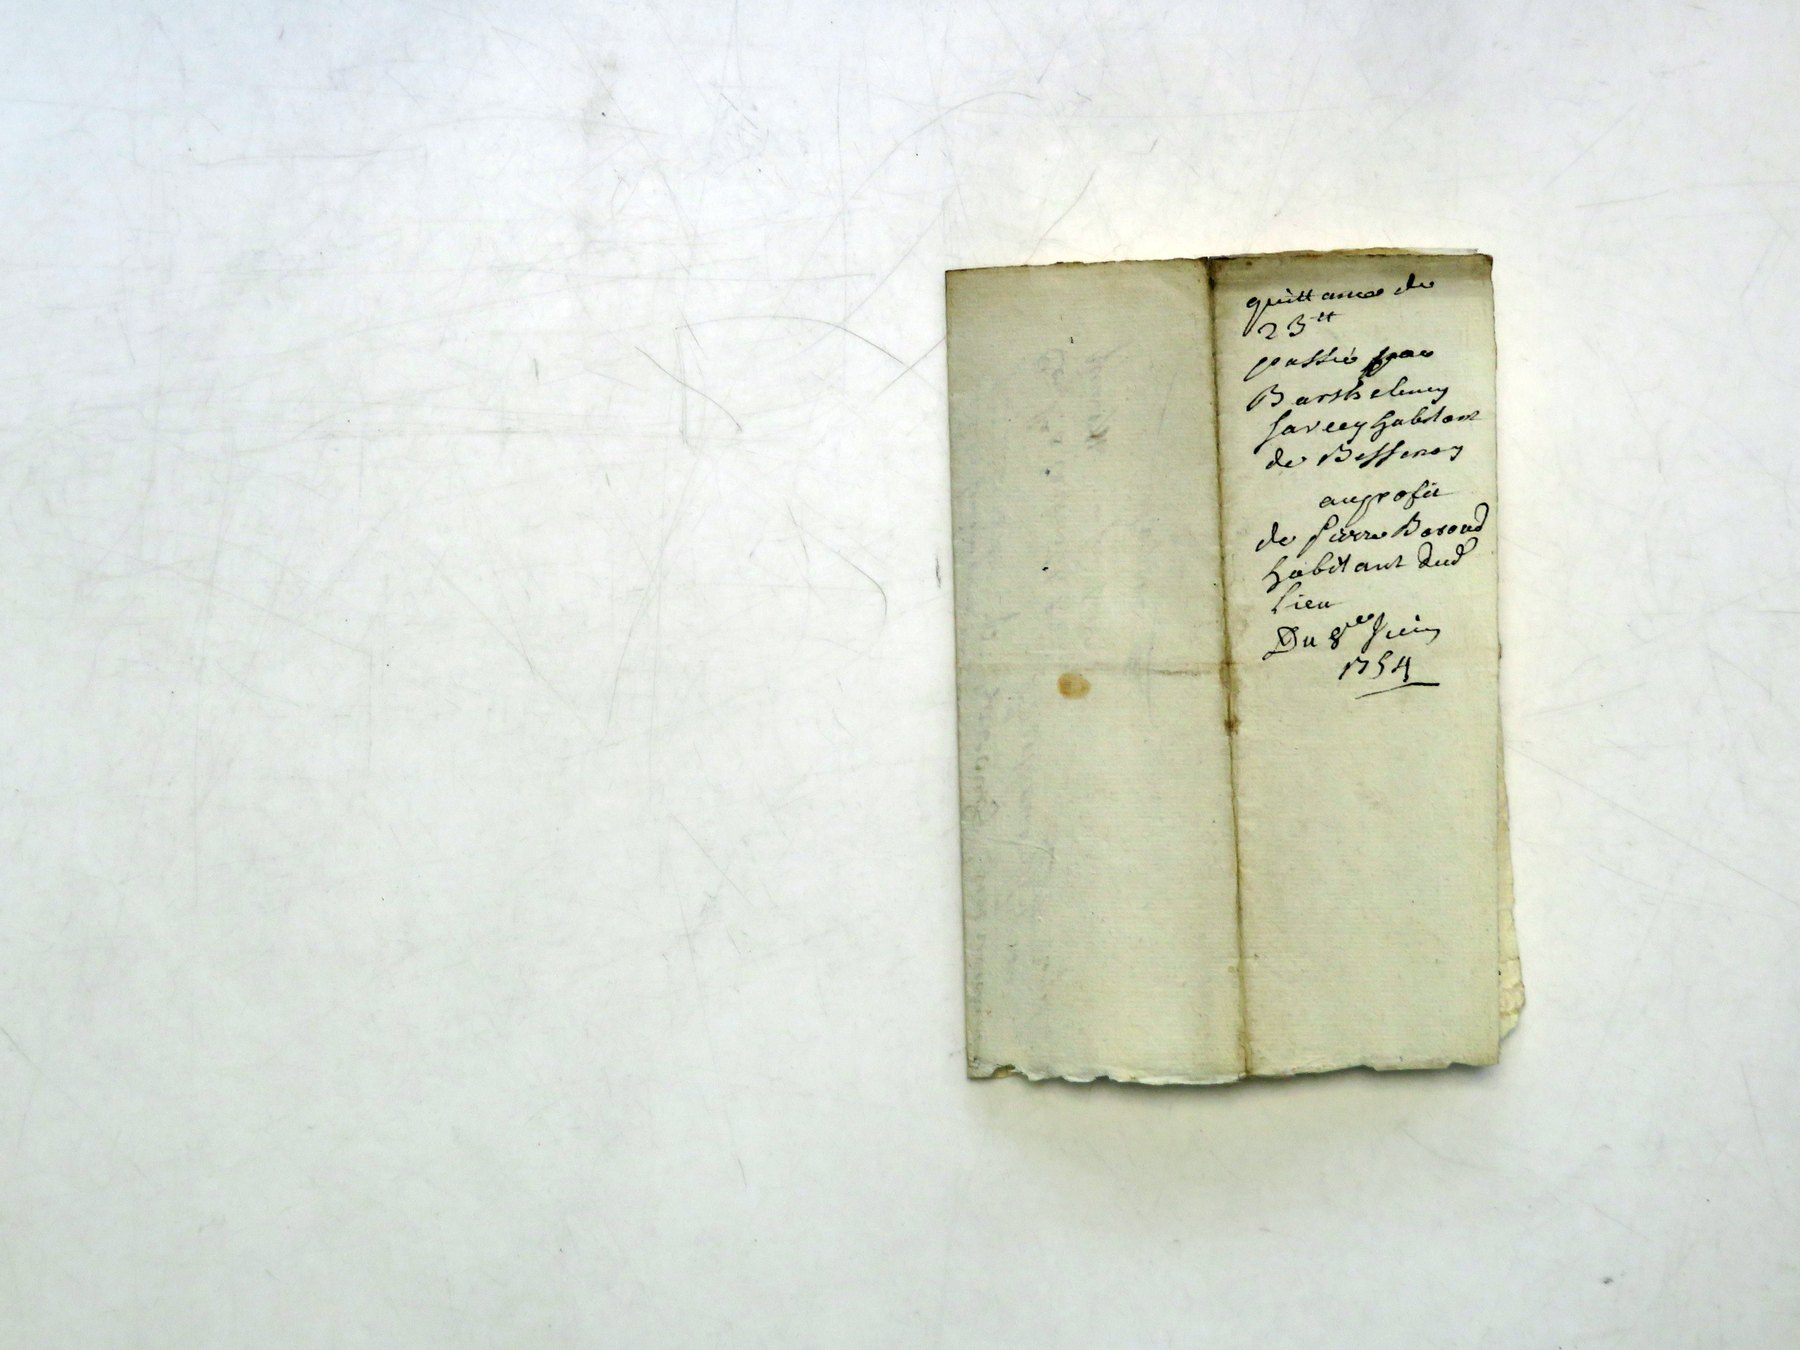 quittance de
23ᵗᵗ
passée par
Barthelemy
Sarcey habitant
de Bessenay
au profit
de Pierre Baroud
habitant dud
lieu
Du 8ᵐᵉ Juin
1754